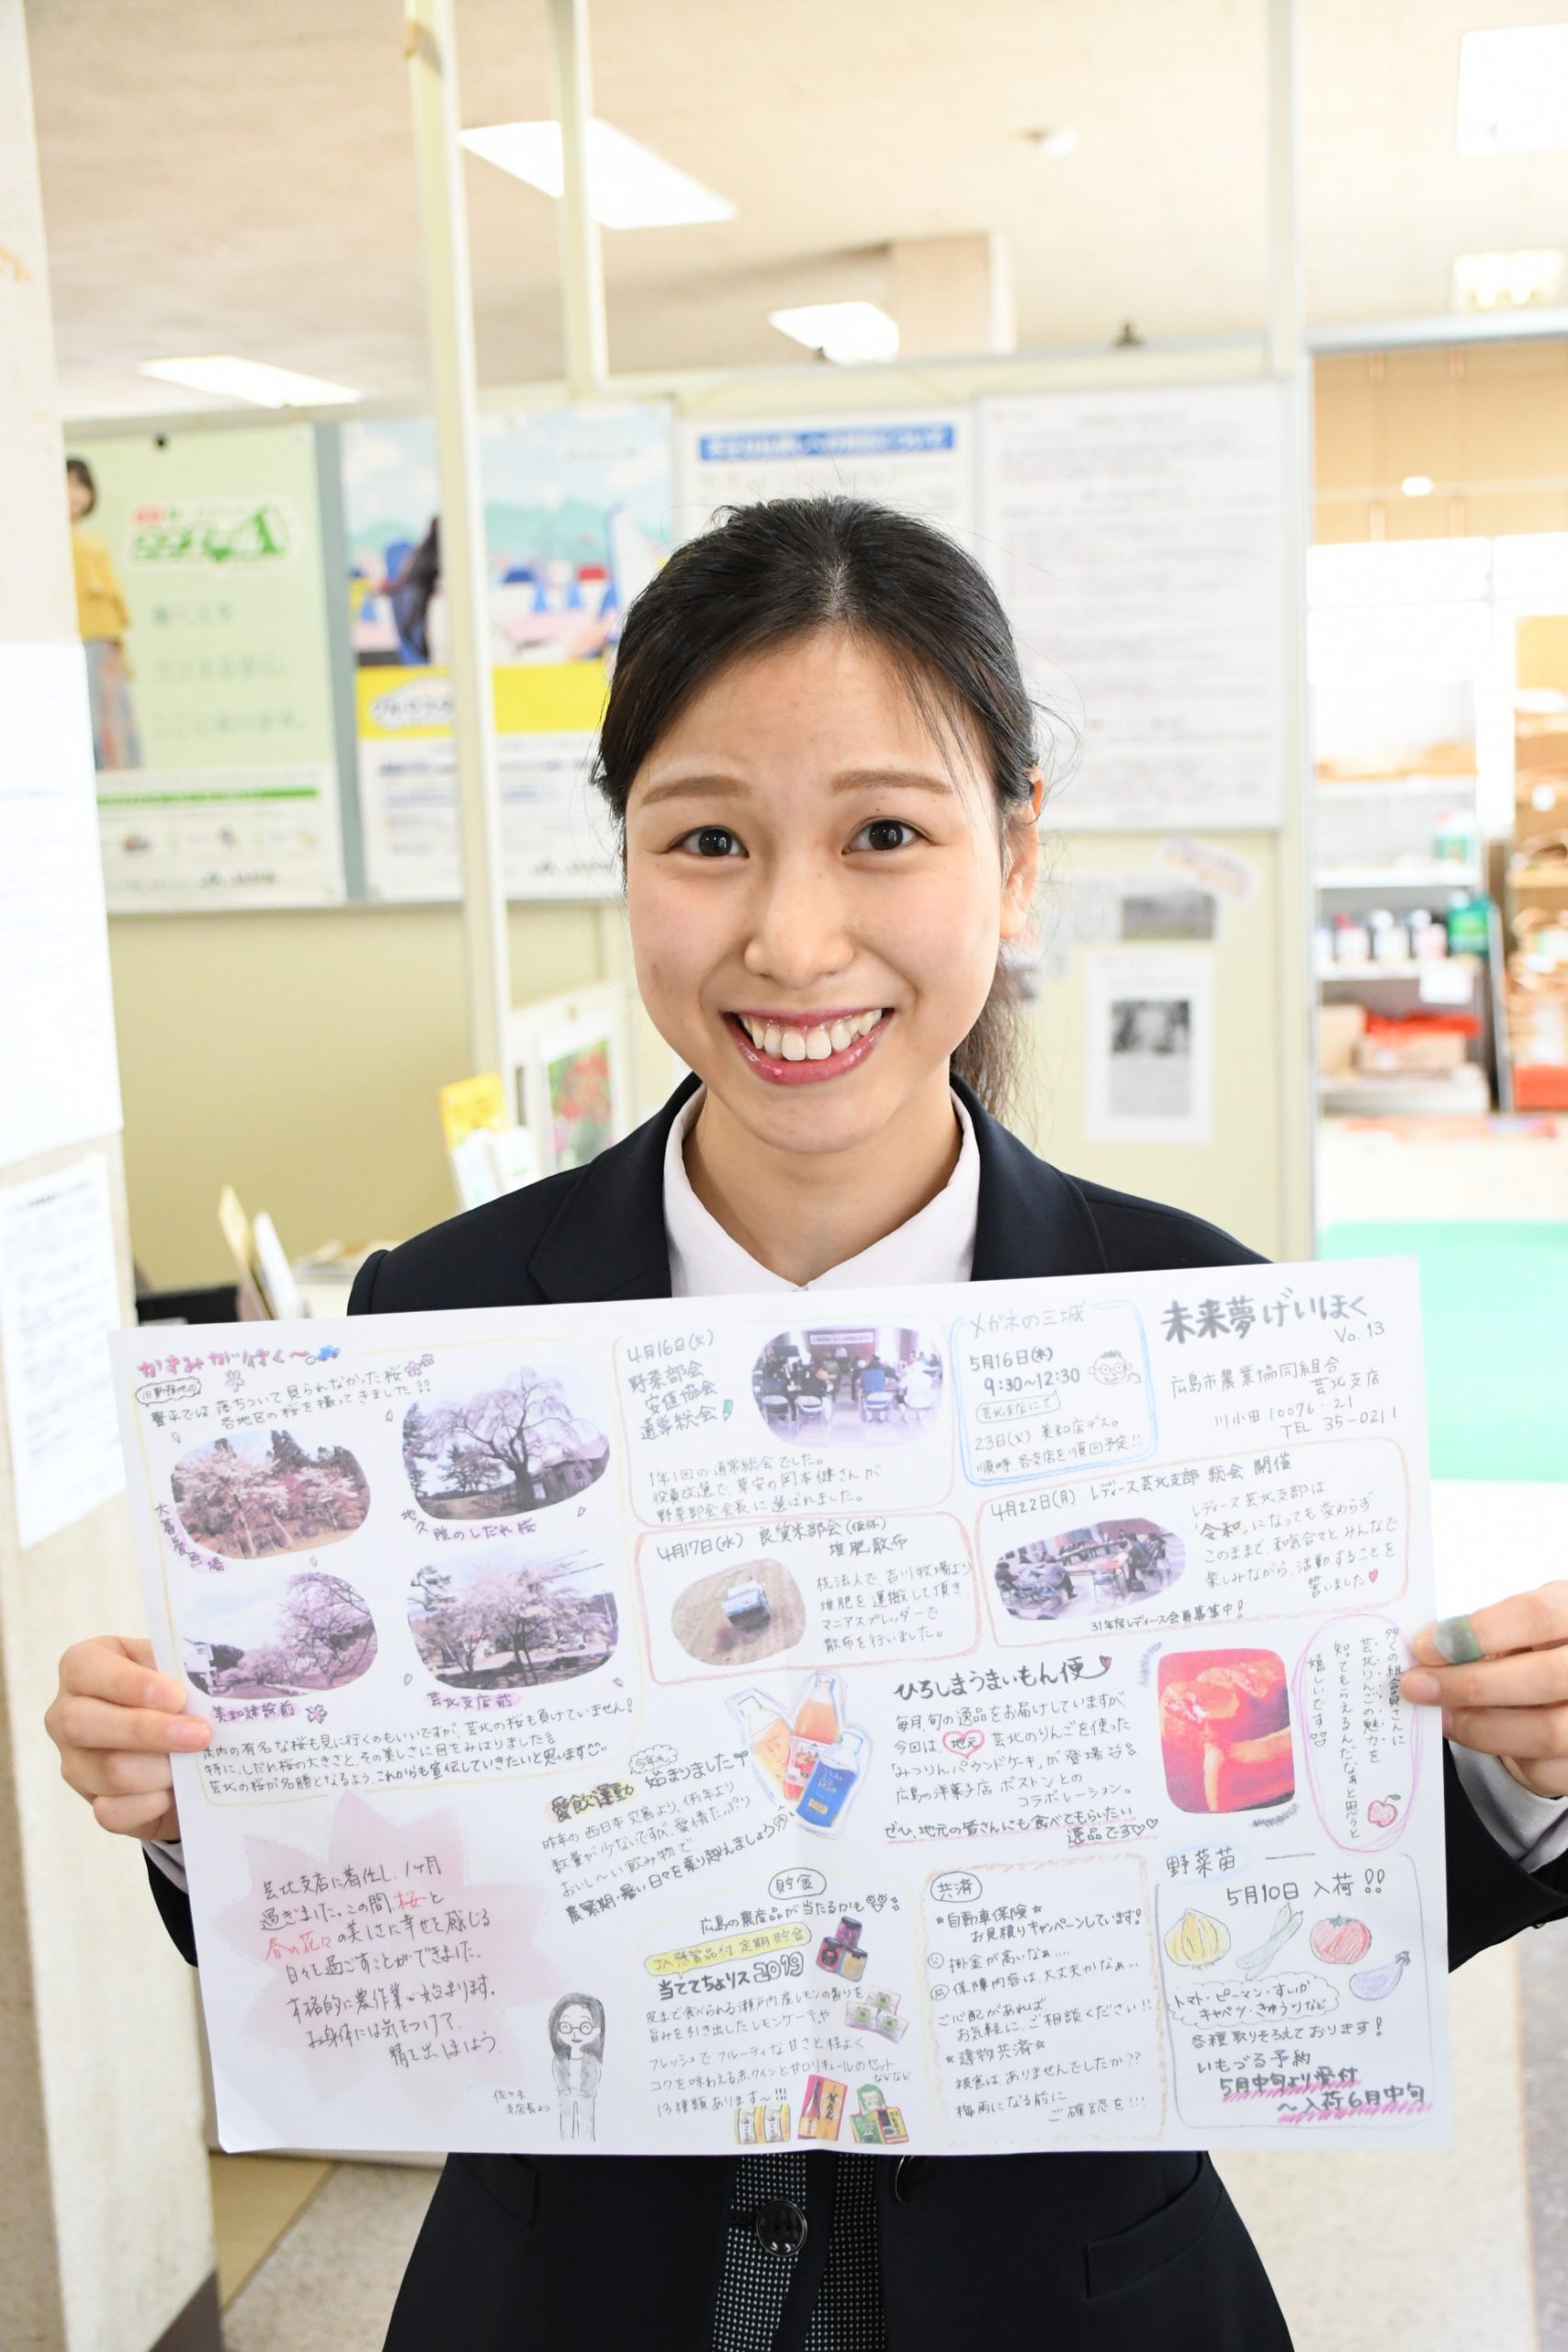 未来夢げいほく
Vo. 13
広島市農業協同組合
芸北支店
川小田 10076-21
TEL 35-0211
メガネの三城
5月16日(木)
9:30~12:30
芸北支店にて
23日(火) 美和店デス。
順時、各支店を順回予定!!
4月16日(火)
野菜部会
安値協会
通常総会
1年1回の通常総会でした。
役員改選で、草安の岡本健さんが
野菜部会会長に選ばれました。
かすみが行く〜
豊平では落ちついて見られなかった桜
各地区の桜を撮ってきました!!
地久院のしだれ桜
美和建設前
芸北支店前
県内の有名な桜も見に行くのもいいですが、芸北の桜も負けていません!
特に、しだれ桜の大きさと、その美しさに目をみはりました
芸北の桜が名勝となるよう、これからも宣伝していきたいと思います
4月22日(月) レディース芸北支部 総会 開催
レディース芸北支部は
"令和"になっても変わらず
このままで、和気合々とみんなで
楽しみながら、活動することを
誓いました♥
31年度レディース会員募集中!
4月17日(水) 良質米部会(仮休)
堆肥散布
杭法人で、吉川牧場より
堆肥を運搬して頂き
マニアスプレッダーで
散布を行いました。
ひろしまうまいもん便
毎月旬の逸品をお届けしていますが
今回は 地元 芸北のりんごを使った
「みつりんパウンドケーキ」が登場
広島の洋菓子店 ボストンとの
コラボレーション。
ぜひ、地元の皆さんにも食べてもらいたい
逸品です♡♡
多くの組合員さんに
芸北りんごの魅力を
知ってもらえるんだなぁと思うと
嬉しいです
今年も
愛飲運動 始まりました
昨年の西日本災害より、例年より
数量が少ないですが、愛情たっぷり
おいし〜い飲み物で
農繁期・暑い日々を乗り越えましょう
野菜苗
5月10日 入荷!!
トマト・ピーマン・すいか
キャベツ・きゅうりなど
各種取りそろえております!
いもづる予約
5月中旬より受付
〜入荷6月中旬
共済
★自動車保険★
お見積りキャンペーンしています!
掛金が高いなぁ…
保障内容は大丈夫かなぁ…
ご心配があれば
お気軽に、ご相談ください!!
★建物共済★
被害は、ありませんでしたか??
梅雨になる前に
ご確認を!!!
貯金
広島の農産品が当たるかも
JA懸賞品付定期貯金
当ててちょリス2019
皮まで食べられる瀬戸内産レモンの香りを
旨みを引き出したレモンケーキや
フレッシュで、フルーティな甘さと程よく
コクを味わえる赤ワインと甘口リキュールのセット
などなど
13種類あります〜!!!
芸北支店に着任し、1ヶ月
過ぎました。この間、桜と
春の花々の美しさに幸せを感じる
日々を過ごすことができました。
本格的に農作業が始まります。
お身体には気をつけて
精を出しましょう
佐々木
支店長より